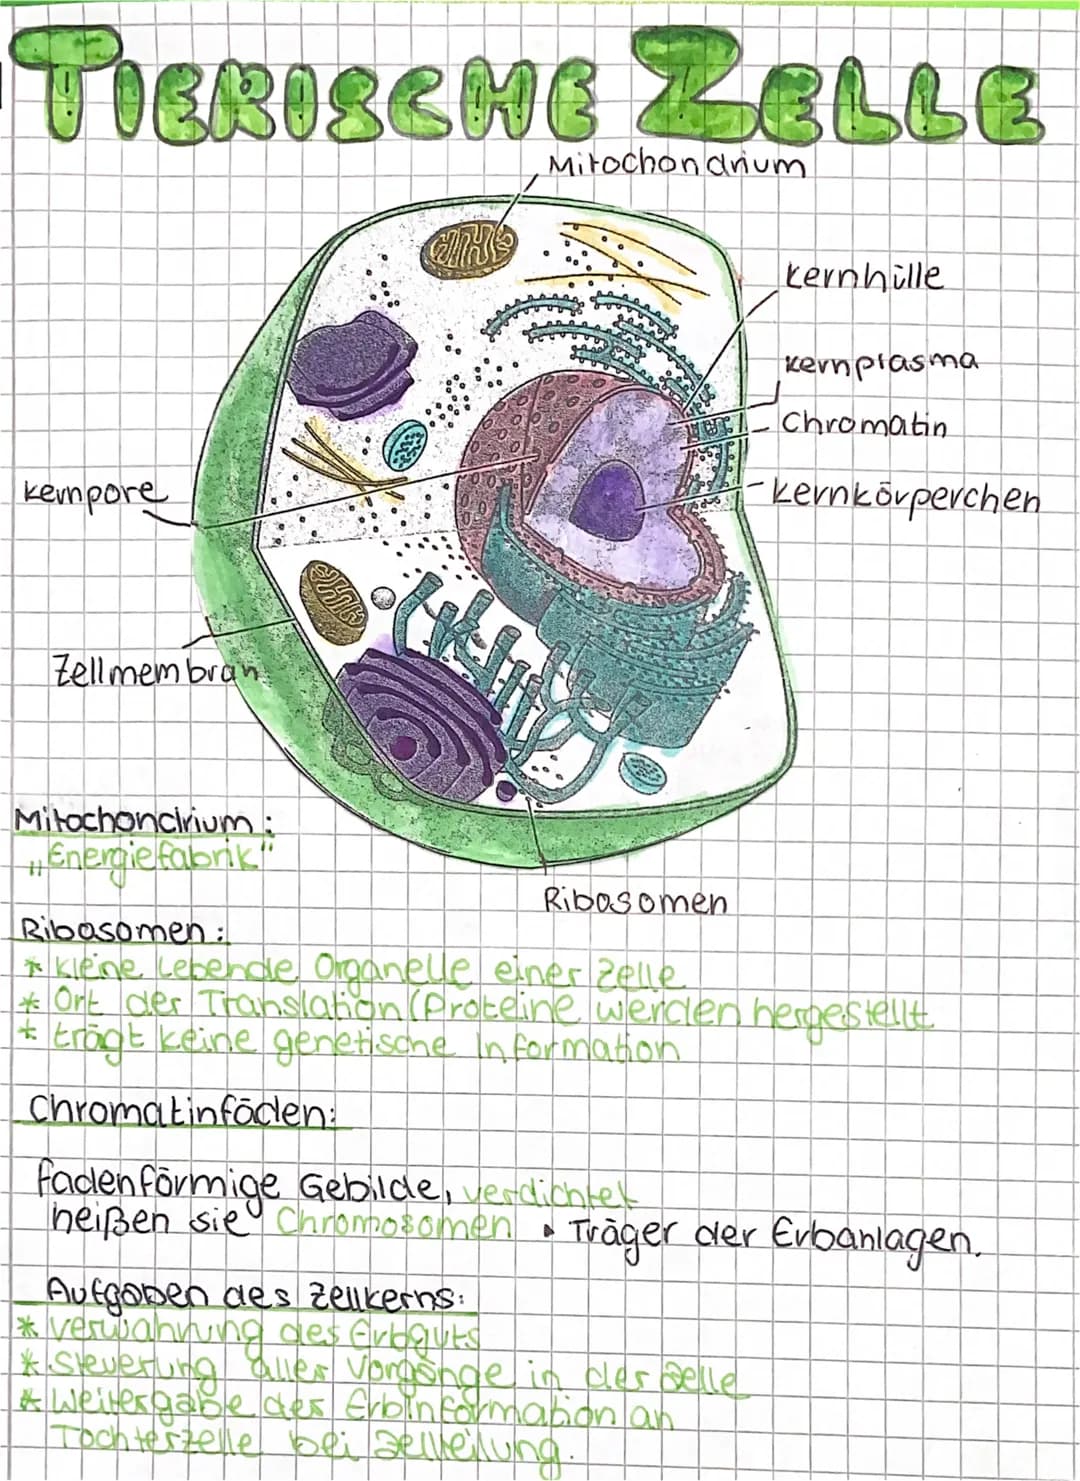 TIERISCHE ZELLE
Mitochondrium
Kernhülle
Kernplasma
Chromatin
Kernpore
Kernkörperchen
Zellmembran
Mitochondrium:
„Energiefabrik"
Ribosomen
Ribosomen:
* kleine lebende Organelle einer Zelle
* Ort der Translation (Proteine werden hergestellt
* trägt keine genetische Information
Chromatinfäden:
fadenförmige Gebilde, verdichtet
heißen sie Chromosomen • Träger der Erbanlagen.
Aufgaben des Zellkerns:
* Verwahrung des Erbguts
* Steuerung aller Vorgänge in der Zelle
* Weitergabe der Erbinformation an
Tochterzelle bei Zellteilung.